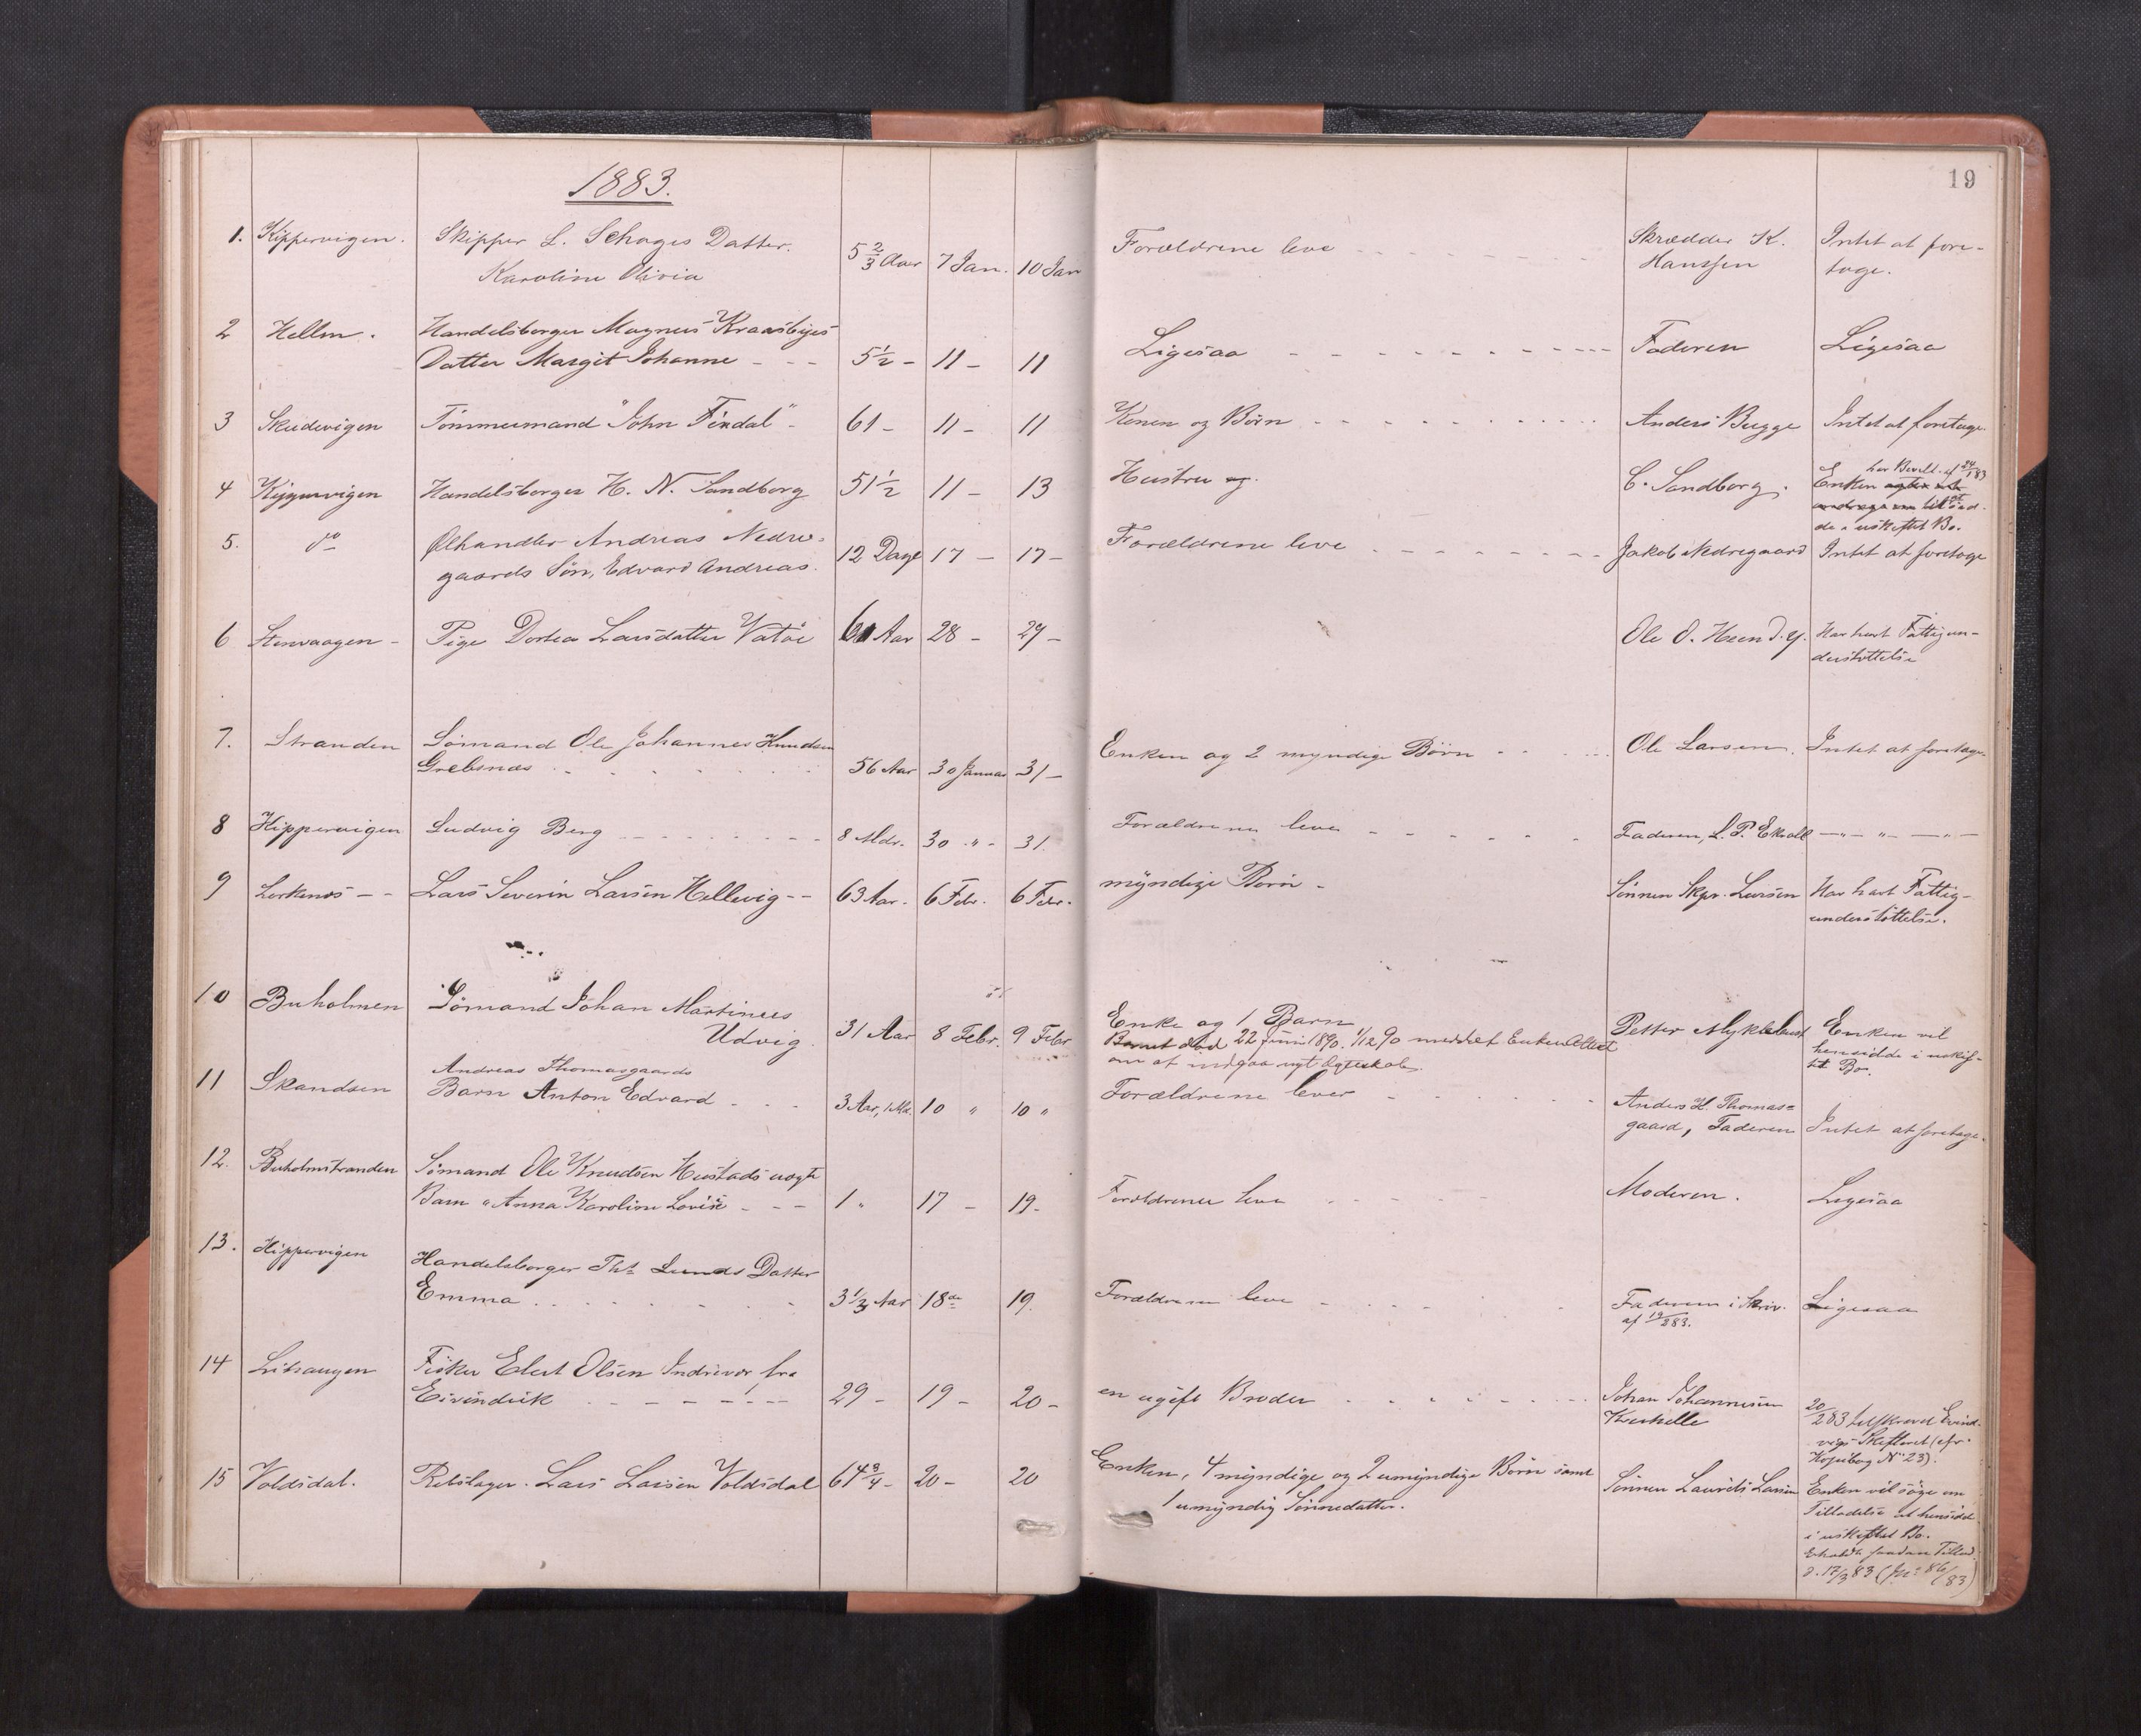 1883.
19
1. Kippervigen. Skipper L. Schages Datter. Karoline Olivia 5 2/3 Aar 7 Jan. 10 Jan Forældrene leve Skrædder K. Hanssen Intet at fore-
tage.
2 Hellen. Handelsborger Magnus Kraasbyes
Datter Margit Johanne 5½ - 11 - 11 Ligesaa Faderen Ligesaa
3 Skudevigen Tömmermand "John Findal" - 61 - 11 - 11 Konen og Börn Anders Bugge Intet at foretage.
4 Handelsborger H. N. Sandborg 51½ 11 - 13 Hustru og. C. Sandborg.
har Bevill. af 24/1 83
Enken
de i uskiftet Bo.
5. do Ølhandler Andreas Nedre-
gaards Sön, Edvard Andreas. 12 Dage 17 - 17 - Forældrene leve Jakob Nedregaard Intet at foretage
6 Stenvaagen - Pige Dortea Larsdatter Vatöe 61 Aar 28 - 29 - Ole O. Har havt Fattigun-
derstöttelse
7. Stranden Sömand Ole Johannes Knudsen
Grebsnæs 56 Aar 30 Januar 31 - Enken og 2 myndige Börn Ole Larsen. Intet at foretage
8 Kippervigen Ludvig Berg 8 Mdr. 30 " - 31. Forældrene leve Faderen, L. P. Ekroll -"- "- -"-
9 Lorkenæs - - Lars Severin Larsen Hellevig - - 63 Aar. 6 Febr. 6 Febr. myndige Börn - Sönnen Skpr. Larsen Har havt Fattig-
understöttelse.
10 Buholmen Sömand Johan Martinus
Udvig 31 Aar 8 Febr. 9 Febr Enke og 1 Barn Petter Myklebust Enken vil
hensidde i uskif-
tet Bo.
Barnet död 22 Juni 1890. 1/12 90 meddelt Enken Attest
om at indgaa nyt Ægteskab.
11 Skandsen Andreas Thomasgaards
Barn Anton Edvard 3 Aar, 1 Md. 10 " 10 " Forældrene lever Anders H. Thomas=
gaard, Faderen Intet at foretage.
12. Buholmstranden Sömand Ole Knudsen Hustads uægte
Barn "Anna Karoline Lovise 1 " 17 - 19 - Forældrene leve Moderen. Ligesaa
13. Kippervigen Handelsborger Th. Lunds Datter
Emma 3 1/3 Aar 18de 19. Forældrene leve Faderen i Skriv.
af 19/2 83. Ligesaa
14 Lihaugen Fisker Elert Olsen Indrevær fra
Eivindvik 29 - 19 - 20 - en ugift Broder Johan Johannesen
20/2 83 tilskrevet Evind-
vigs Skifteret (cfr.
Kopibog No 23).
15 Voldsdal. Rebslager. Lars Larsen Voldsdal 64 3/4 - 20 - 20 Enken, 4 myndige og 2 umyndige Börn samt
1 umyndig Sönnedatter. Sönnen Laurits Larsen Enken vil söge om
Tilladelse at hensidde
i uskiftet Bo.
Erholdt saadan Tillad.
d. 17/3 83 (Jr: 86/83)